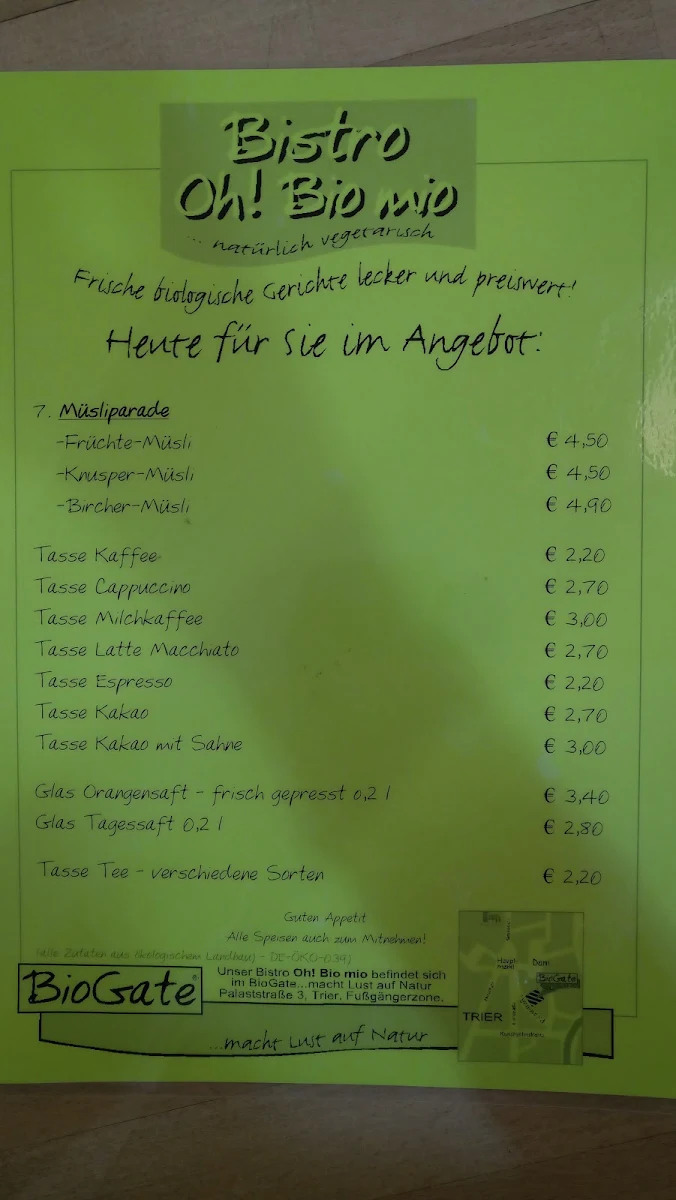 Bistro
Oh! Bio mio
... natürlich vegetarisch
Frische biologische Gerichte lecker und preiswert!
Heute für Sie im Angebot:
7. Müsliparade
-Früchte-Müsli € 4,50
-Knusper-Müsli € 4,50
-Bircher-Müsli € 4,90
Tasse Kaffee € 2,20
Tasse Cappuccino € 2,70
Tasse Milchkaffee € 3,00
Tasse Latte Macchiato € 2,70
Tasse Espresso € 2,20
Tasse Kakao € 2,70
Tasse Kakao mit Sahne € 3,00
Glas Orangensaft - frisch gepresst 0,2 l € 3,40
Glas Tagessaft 0,2 l € 2,80
Tasse Tee - verschiedene Sorten € 2,20
Guten Appetit
Alle Speisen auch zum Mitnehmen!
(alle Zutaten aus ökologischem Landbau) - DE-ÖKO-039)
BioGate®
Unser Bistro Oh! Bio mio befindet sich
im BioGate...macht Lust auf Natur
Palaststraße 3, Trier, Fußgängerzone.
...macht Lust auf Natur
Haupt-
markt
Dom
BioGate
TRIER